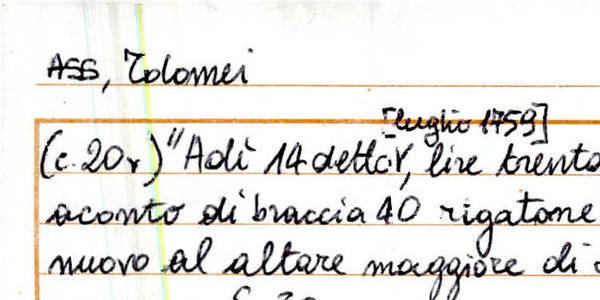 ASS, Tolomei
[luglio 1759]
(c. 20r) "Adì 14 detto, lire trenta
aconto di braccia 40 rigatone
nuovo al altare maggiore di